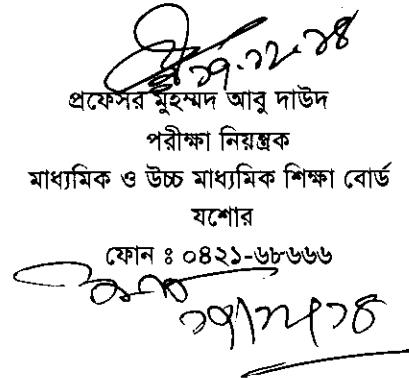 প্রফেসর মুহম্মদ আবু দাউদ
পরীক্ষা নিয়ন্ত্রক
মাধ্যমিক ও উচ্চ মাধ্যমিক শিক্ষা বোর্ড
যশোর
ফোন ঃ ০৪২১-৬৮৬৬৬